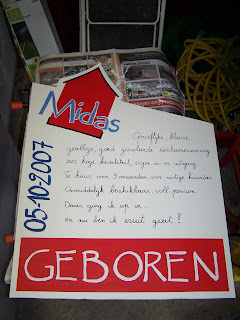 Midas
05-10-2007
Gerieflijke kleine,
gezellige, goed geïsoleerde eenkamerwoning
zeer hoge kwaliteit, eigen in en uitgang.
Te huur voor 9 maanden, voor rustige huurder.
Onmiddellijk beschikbaar, vol pension.
Daar ging ik op in...
en nu ben ik eruit gezet!
GEBOREN